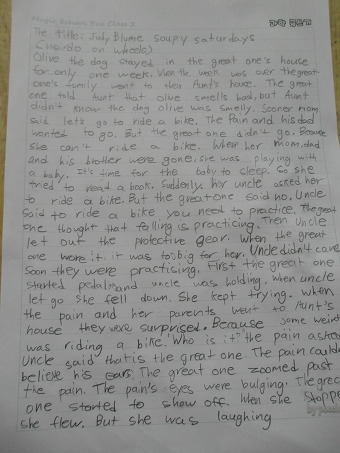 The title: Judy Blume soupy saturdays
on wheels)
Olive the dog stayed in the great one's house
for only one week. When the week was over the great
one's family went to their Aunt's house. The great
one told Aunt that Olive smells bad, but Aunt
didn't know the dog Olive was smelly. Sooner mom
said let's go to ride a bike. The Pain and his dad
wanted to go. But the great one didn't go. Because
she can't ride a bike. When her mom, dad
and his brother were gone, she was playing with
a baby. It's time for the baby to sleep. So she
tried to read a book. Suddenly, her uncle asked her
to ride a bike. But the great one said no. Uncle
said to ride a bike you need to practice. The great
one thought that falling is practicing. Then Uncle
let out the protective gear. When the great
one wore it, it was to big for her. Uncle didn't care
Soon they were practising. First the great one
started pedal and uncle was holding, when uncle
let go she fell down. She kept trying. When
the pain and her parents went to Aunt's
house they were surprised. Because some weird
was riding a bike. "Who is it?" the pain
Uncle said that is the great one. The pain
believe his ears. The great one zoomed past
the pain. The pain's eyes were bulging. The
one started to show off. When she
she flew. But she was laughing